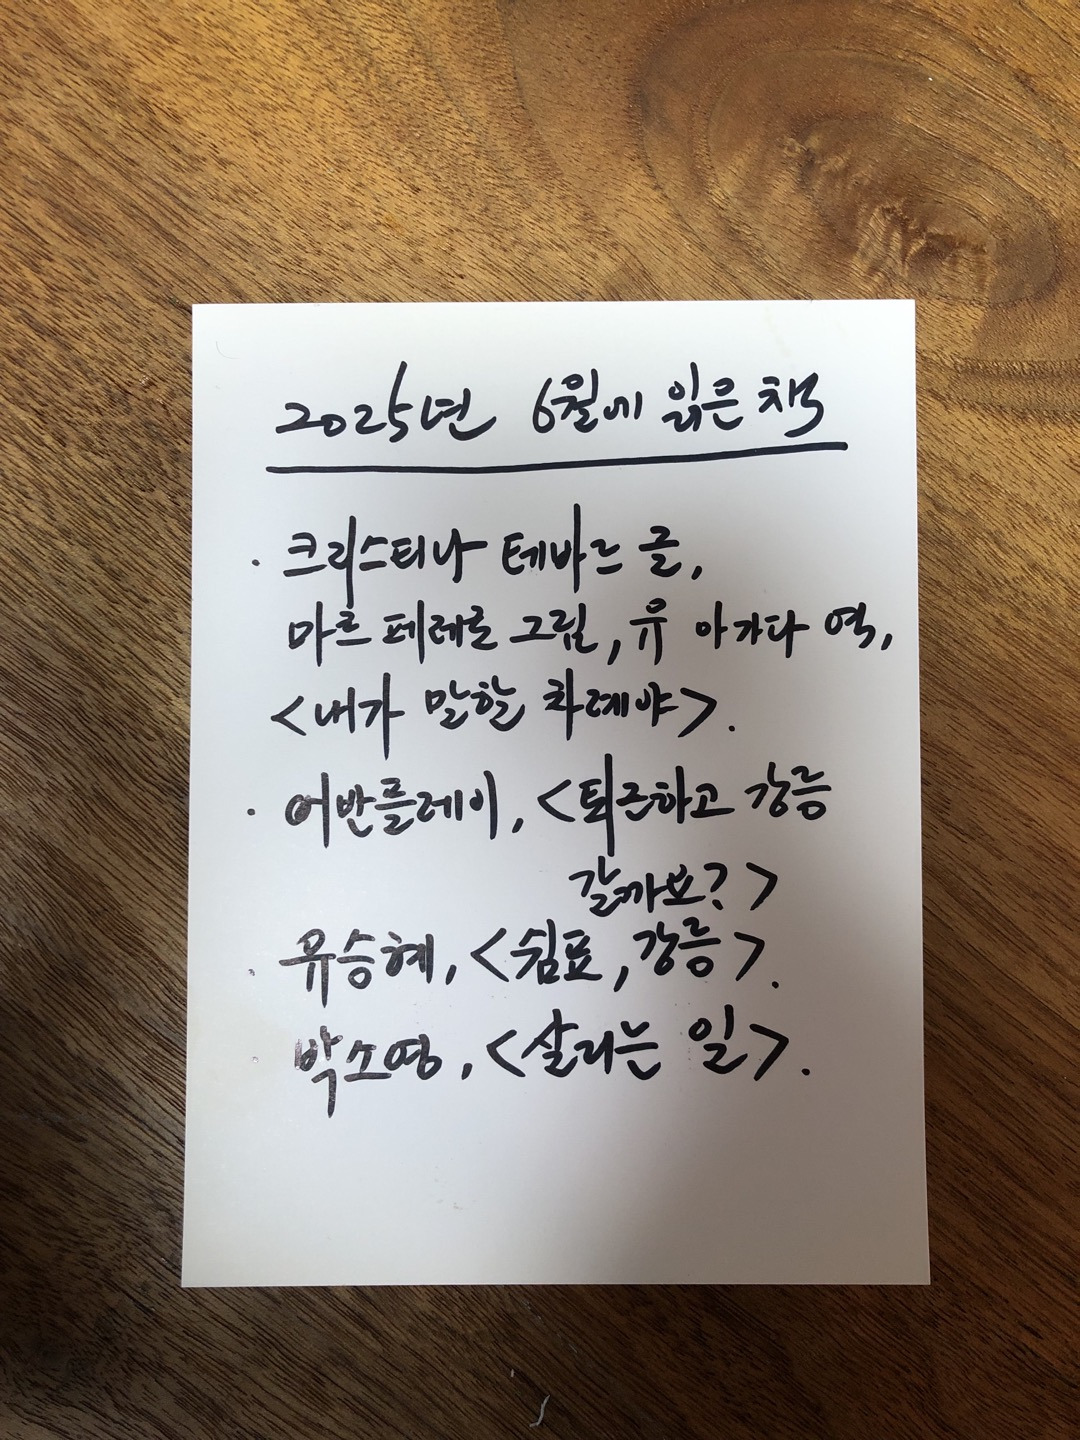 2025년 6월에 읽은 책
· 크리스티나 테바르 글,
마르 페레로 그림, 유 아가다 역,
<내가 말할 차례야>.
· 어반플레이, <퇴근하고 강릉
갈까요?>
· 유승혜, <쉼표, 강릉>.
· 박소영, <살리는 일>.